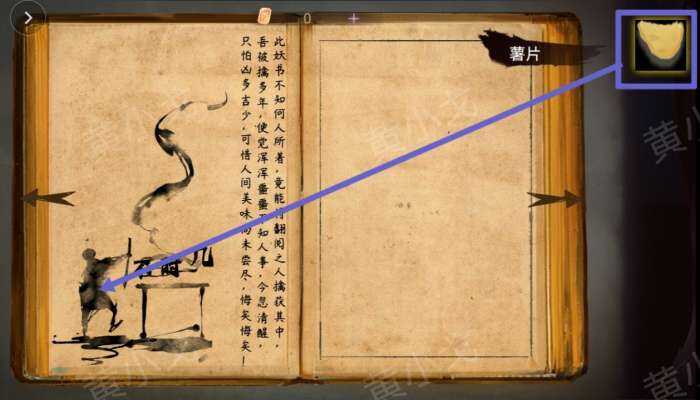 0
薯片
此妖书不知何人所著，竟能将翻阅之人擒获其中，
吾被擒多年，便觉浑浑噩噩不知人事，今忽清醒，
只怕凶多吉少，可惜人间美味尚未尝尽，悔矣悔矣！
黄小戈
黄小
黄小
黄小戈
黄小